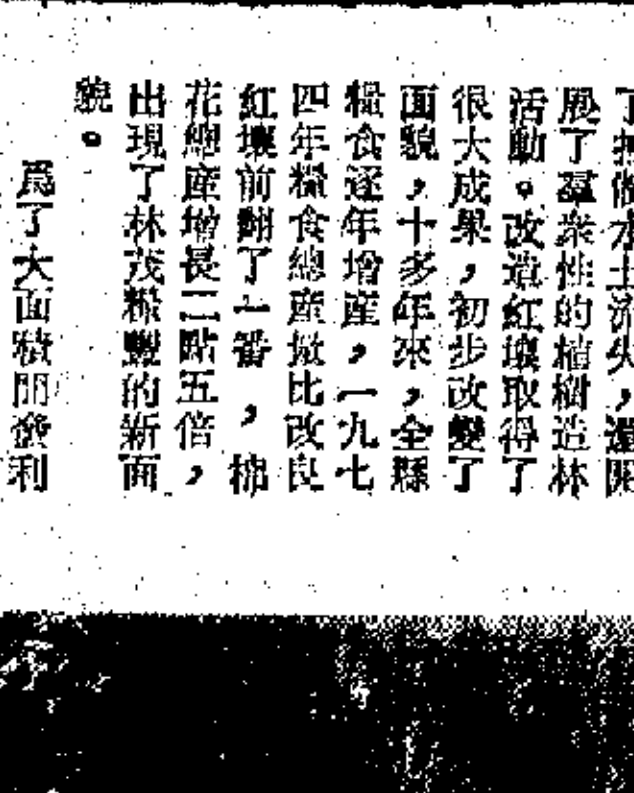 了無做水土流失，還開
展了羣衆性的植樹造林
活動。改造紅壤取得了
很大成果，初步改變了
面貌，十多年來，全縣
糧食逐年增産，一九七
四年糧食總産量比改良
紅壤前翻了一番，棉
花總産增長二點五倍，
出現了林茂糧豐的新面
貌。
爲了大面積開發利